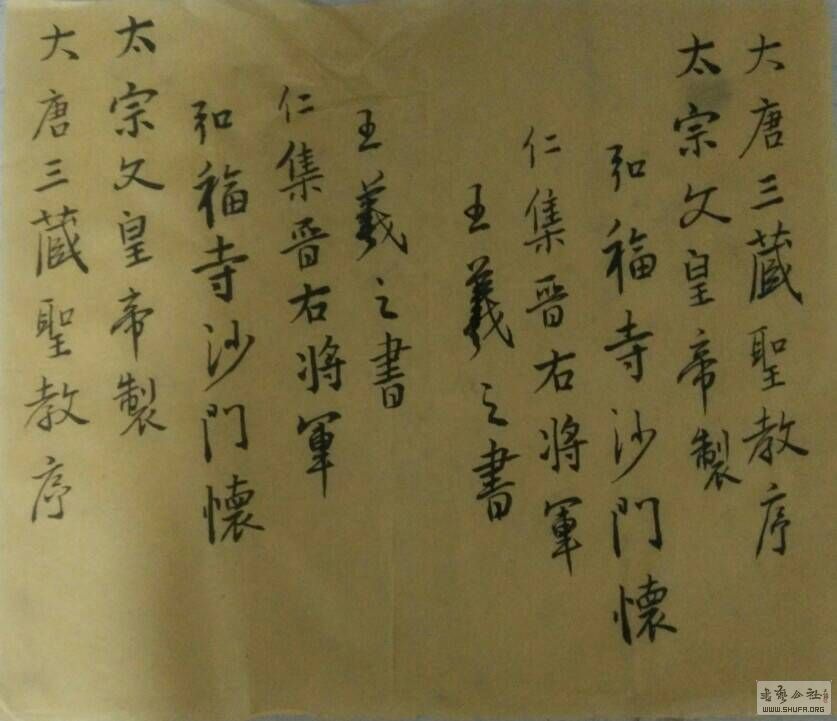 大唐三蔵聖教序
太宗文皇帝製
弘福寺沙門懷
仁集晋右将軍
王羲之書
大唐三蔵聖教序
太宗文皇帝製
弘福寺沙門懷
仁集晋右将軍
王羲之書
WWW.SHUFA.ORG